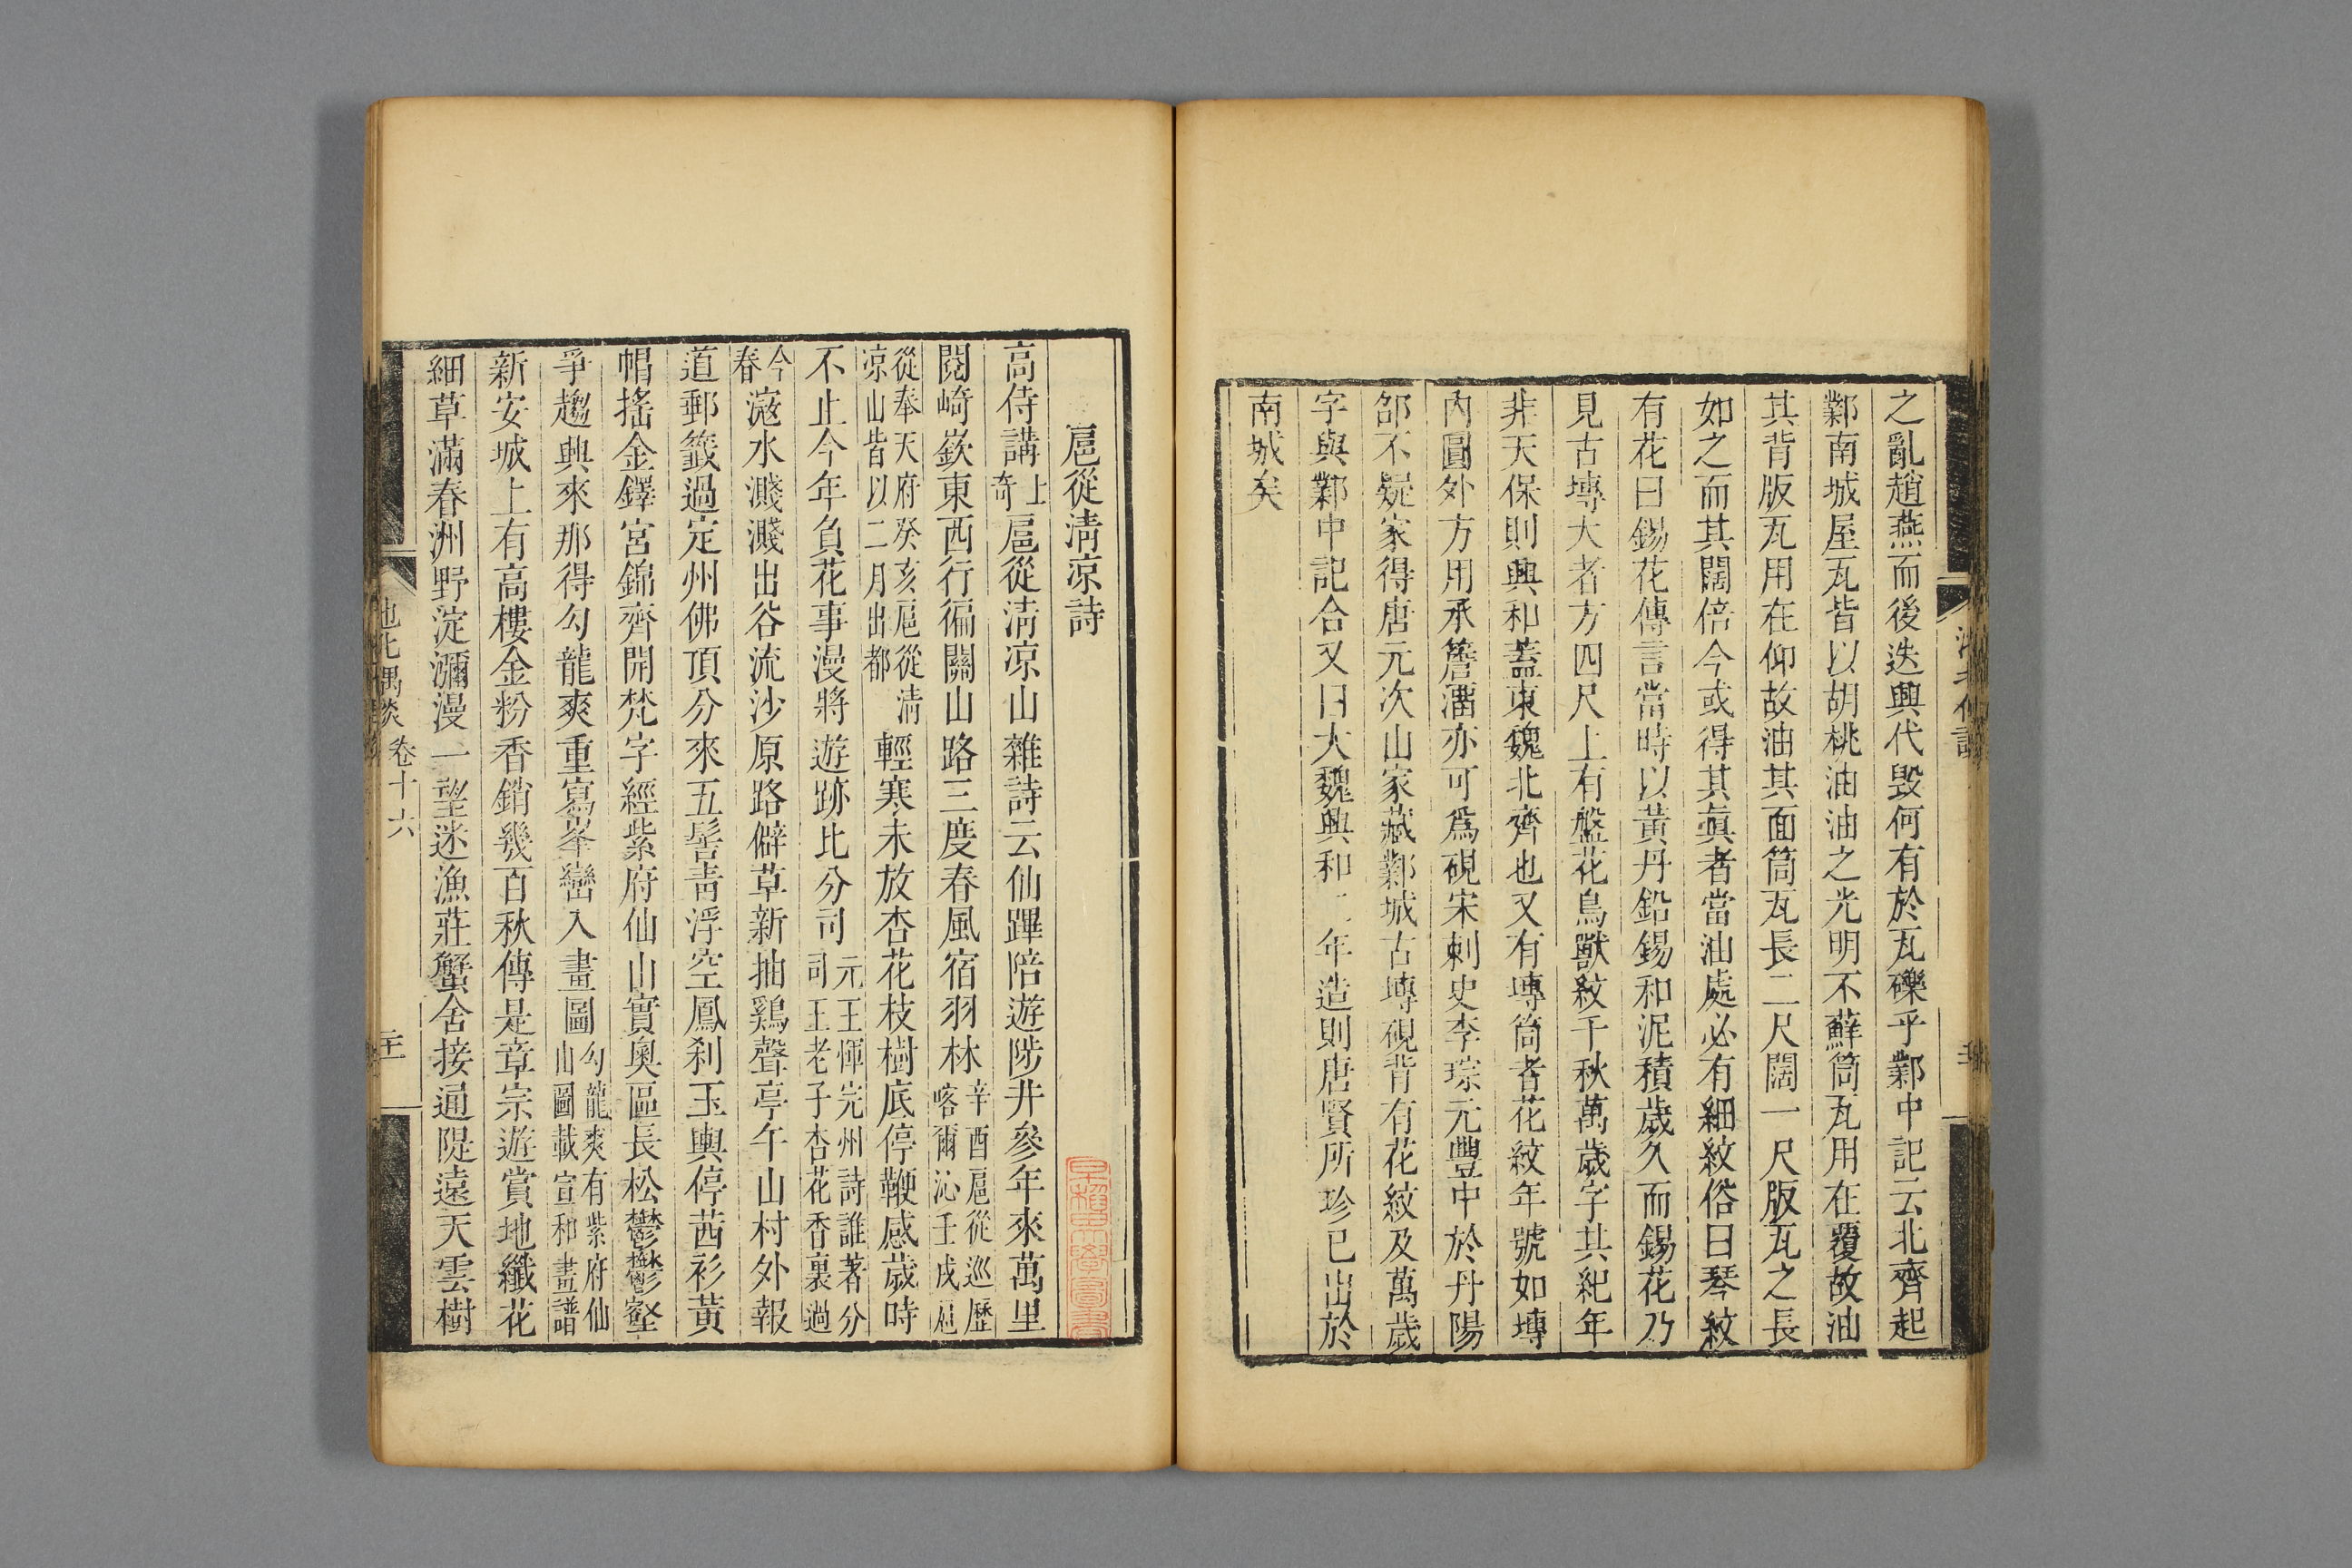 之亂趙燕而後迭興代毀何有於瓦礫乎鄴中記云北齊起
鄴南城屋瓦皆以胡桃油油之光明不蘚筒瓦用在覆故油
其背版瓦用在仰故油其面筒瓦長二尺闊一尺版瓦之長
如之而其闊倍今或得其眞者當油處必有細紋俗曰琴紋
有花曰錫花傳言當時以黃丹鉛錫和泥積歲久而錫花乃
見古塼大者方四尺上有盤花鳥獸紋千秋萬歲字其紀年
非天保則興和蓋東魏北齊也又有塼筒者花紋年號如塼
內圓外方用承簷溜亦可爲硯宋刺史李琮元豐中於丹陽
邵不疑家得唐元次山家藏鄴城古塼硯背有花紋及萬歲
字與鄴中記合又曰大魏興和二年造則唐賢所珍已出於
南城矣
扈從淸凉詩
高侍講士奇扈從淸凉山雜詩云仙蹕陪遊陟井參年來萬里
閱崎嶔東西行徧關山路三度春風宿羽林辛酉扈從巡歷喀爾沁壬戌扈
從奉天府癸亥扈從淸凉山皆以二月出都輕寒未放杏花枝樹底停鞭感歲時
不止今年負花事漫將遊跡比分司元王惲完州詩誰著分司王老子杏花香裏過
今春滱水濺濺出谷流沙原路僻草新抽鷄聲亭午山村外報
道郵籤過定州佛頂分來五髻靑浮空鳳刹玉輿停茜衫黃
帽搖金鐸宮錦齊開梵字經紫府仙山實奧區長松鬱鬱壑
爭趨興來那得勾龍爽重寫峯巒入畫圖勾龍爽有紫府仙山圖載宣和畫譜
新安城上有高樓金粉香銷幾百秋傳是章宗遊賞地纖花
細草滿春洲野淀瀰漫一望迷漁莊蟹舍接通隄遠天雲樹
池北偶談 卷十六